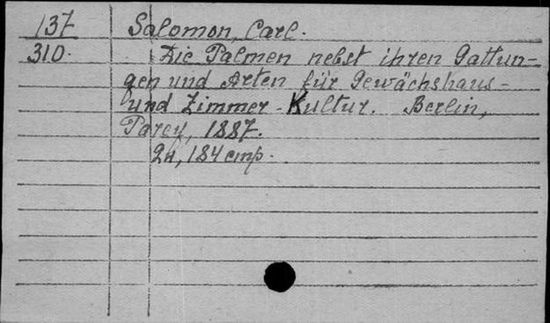 137 Salomon, Carl.
310. Die Palmen nebst ihren Gattun-
gen und Arten für Gewächshaus-
und Zimmer-Kultur. Berlin,
Parey, 1887.
2л, 184 стр.